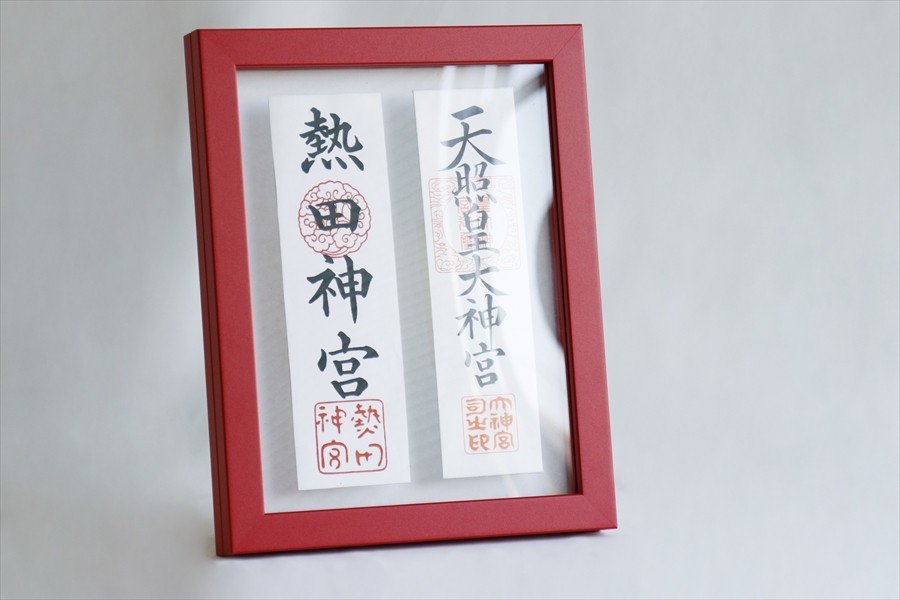 天照皇大神宮
大神宮司之印
熱田神宮
熱田神宮